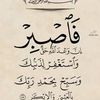 فَٱصْبِرْ
إِنَّ وَعْدَ ٱللَّهِ حَقٌّ
وَٱسْتَغْفِرْ لِذَنۢبِكَ
وَسَبِّحْ بِحَمْدِ رَبِّكَ
بِٱلْعَشِىِّ وَٱلْإِبْكَٰرِ